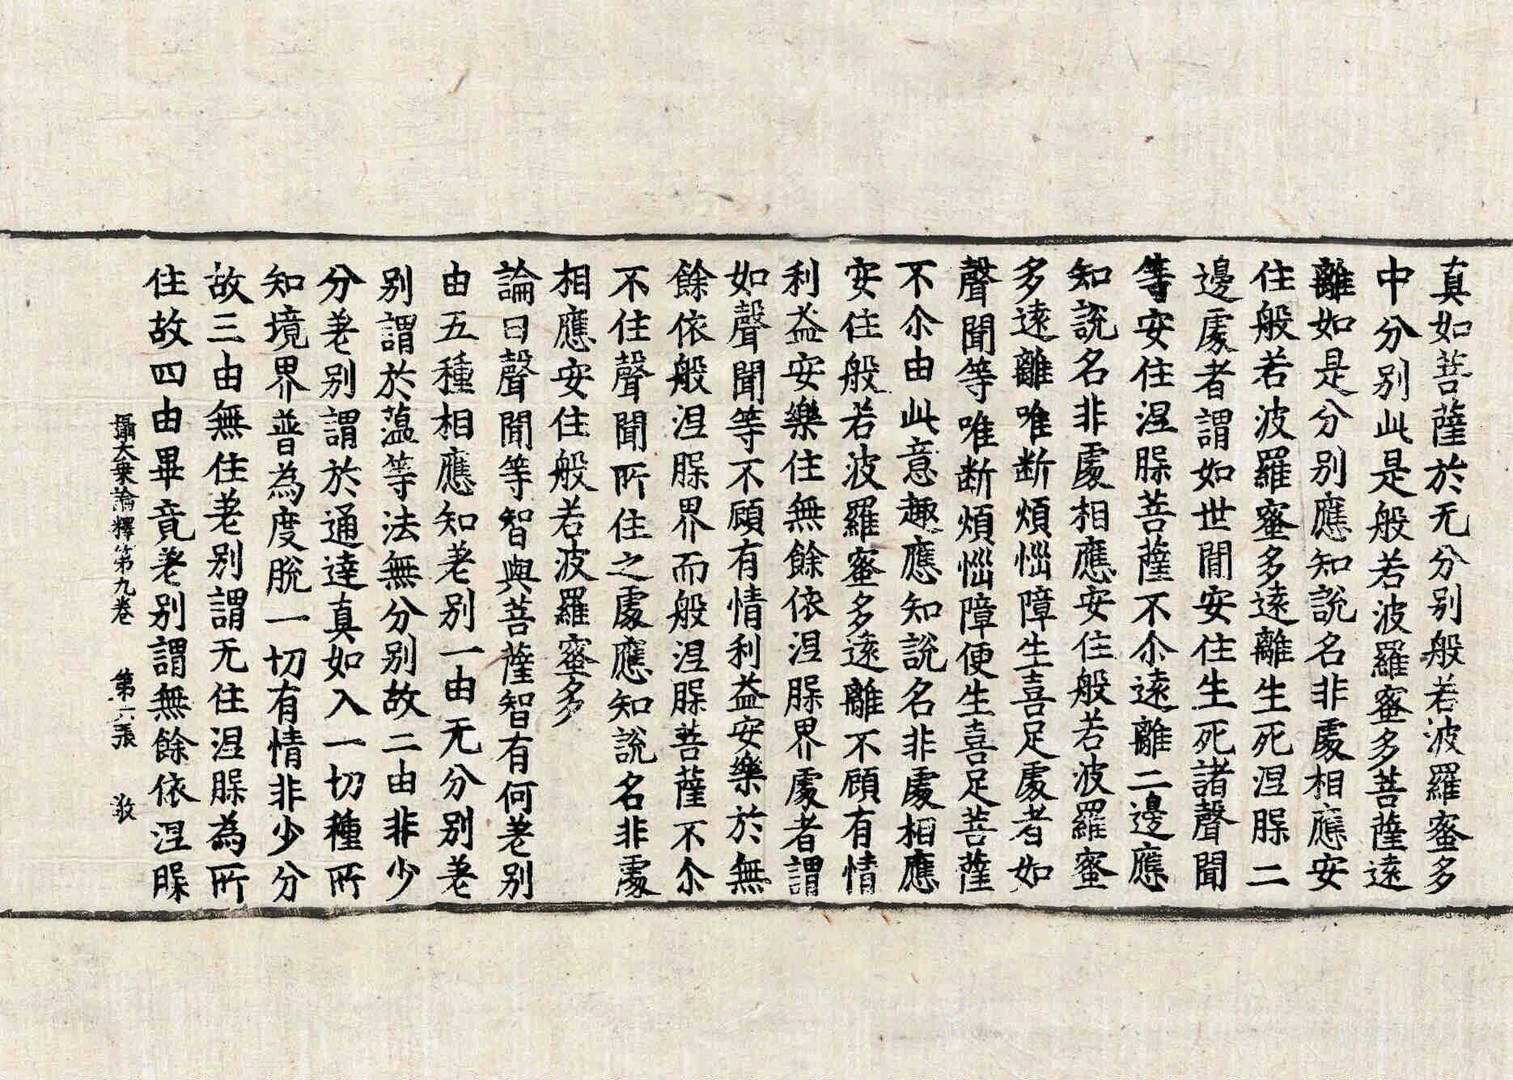 真如菩薩於无分别般若波羅蜜多
中分别此是般若波羅蜜多菩薩遠
離如是分别應知說名非處相應安
住般若波羅蜜多遠離生死涅槃二
邊處者謂如世閒安住生死諸聲聞
等安住涅槃菩薩不尒遠離二邊應
知說名非處相應安住般若波羅蜜
多遠離唯断煩惱障生喜足處者如
聲聞等唯断煩惱障便生喜足菩薩
不尒由此意趣應知說名非處相應
安住般若波羅蜜多遠離不顧有情
利益安樂住無餘依涅槃界處者謂
如聲聞等不顧有情利益安樂於無
餘依般涅槃界而般涅槃菩薩不尒
不住聲聞所住之處應知說名非處
相應安住般若波羅蜜多
論曰聲聞等智與菩薩智有何差别
由五種相應知差别一由无分别差
别謂於薀等法無分别故二由非少
分差别謂於通達真如入一切種所
知境界普為度脫一切有情非少分
故三由無住差别謂无住涅槃為所
住故四由畢竟差别謂無餘依涅槃
攝大乗論釋第九卷 第六張 㪅